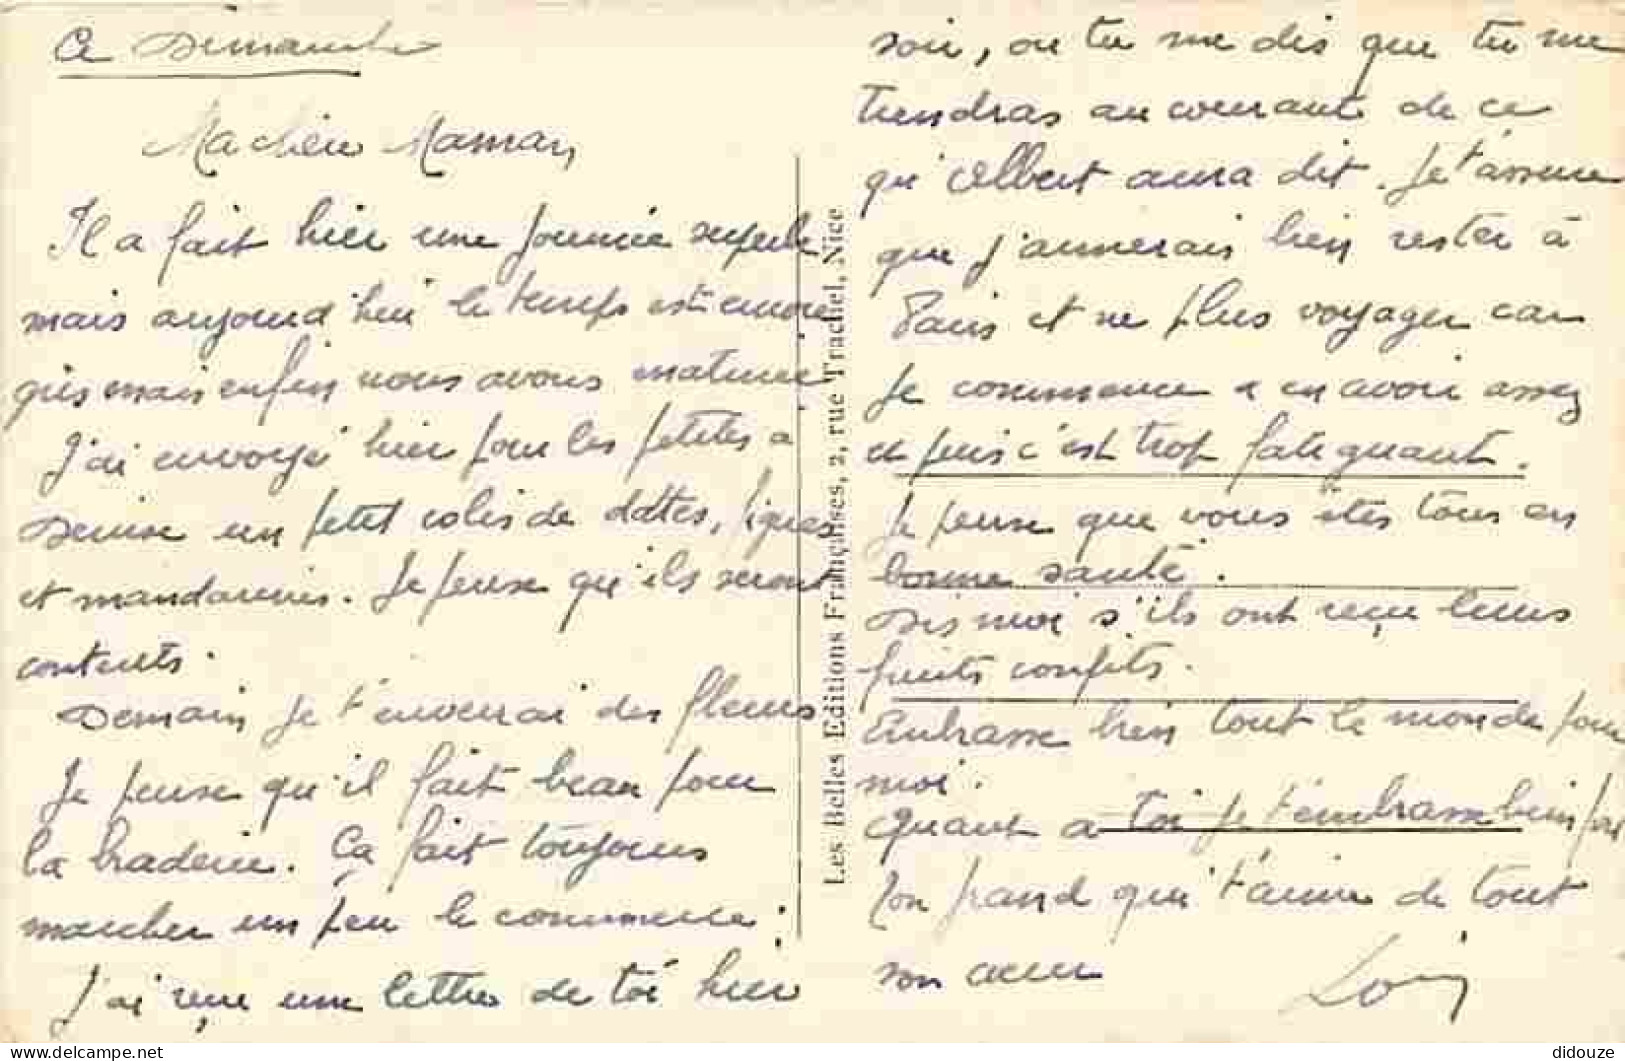 Ce Dimanche
Ma chère Maman,
Il a fait hier une journée superbe
mais aujourd'hui le temps est encore
gris mais enfin nous avons matinée
J'ai envoyé hier pour les petites à
Denise un petit colis de dattes, figues
et mandarines. Je pense qu'ils seront
contents.
Demain je t'enverrai des fleurs
Je pense qu'il fait beau pour
la braderie. Ça fait toujours
marcher un peu le commerce ;
J'ai reçu une lettre de toi hier
Les Belles Editions Françaises, 2, rue Trachel, Nice
soir, ou tu me dis que tu me
tiendras au courant de ce
qu'Albert aura dit. Je t'assure
que j'aimerais bien rester à
Paris et ne plus voyager car
je commence a en avoir assez
et puis c'est trop fatiguant.
Je pense que vous êtes tous en
bonne santé.
Dis moi s'ils ont reçu leurs
fruits confits.
Embrasse bien tout le monde pour
moi.
Quant a toi je t'embrasse bien fort
Ton grand qui t'aime de tout
son cœur
didouze